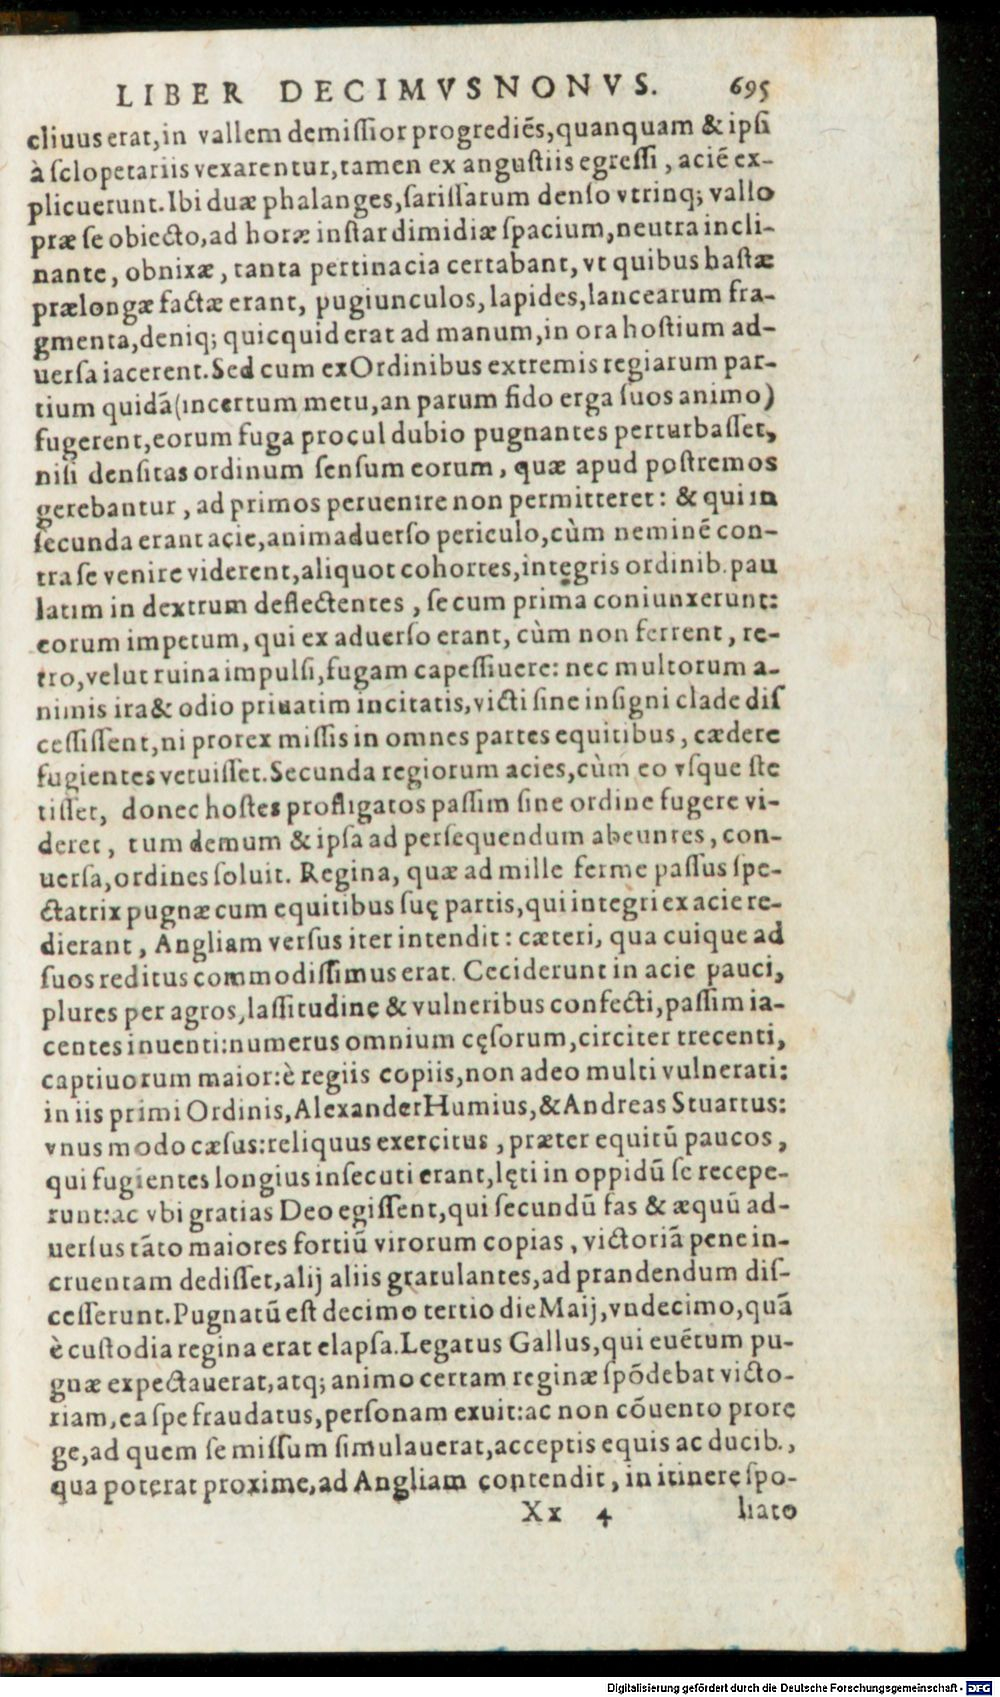 LIBER DECIMVSNONVS. 695
cliuus erat, in vallem demiſſior progrediẽs, quanquam & ipſi
à ſclopetariis vexarentur, tamen ex anguſtiis egreſſi, aciẽ ex-
plicuerunt. Ibi duæ phalanges, ſariſſarum denſo vtrinq; vallo
præ ſe obiecto, ad horæ inſtar dimidiæ ſpacium, neutra incli-
nante, obnixæ, tanta pertinacia certabant, vt quibus haſtæ
prælongæ factæ erant, pugiunculos, lapides, lancearum fra-
gmenta, deniq; quicquid erat ad manum, in ora hoſtium ad-
uerſa iacerent. Sed cum ex Ordinibus extremis regiarum par-
tium quidã (incertum metu, an parum fido erga ſuos animo)
fugerent, eorum fuga procul dubio pugnantes perturbaſſet,
niſi denſitas ordinum ſenſum eorum, quæ apud poſtremos
gerebantur, ad primos peruenire non permitteret: & qui in
ſecunda erant acie, animaduerſo periculo, cùm neminẽ con-
tra ſe venire viderent, aliquot cohortes, integris ordinib. pau
latim in dextrum deflectentes, ſe cum prima coniunxerunt:
eorum impetum, qui ex aduerſo erant, cùm non ferrent, re-
tro, velut ruina impulſi, fugam capeſſiuere: nec multorum a-
nimis ira & odio priuatim incitatis, victi ſine inſigni clade diſ
ceſſiſſent, ni prorex miſſis in omnes partes equitibus, cædere
fugientes vetuiſſet. Secunda regiorum acies, cùm eo vſque ſte
tiſſet, donec hoſtes profligatos paſſim ſine ordine fugere vi-
deret, tum demum & ipſa ad perſequendum abeuntes, con-
uerſa, ordines ſoluit. Regina, quæ ad mille ferme paſſus ſpe-
ctatrix pugnæ cum equitibus ſuę partis, qui integri ex acie re-
dierant, Angliam verſus iter intendit: cæteri, qua cuique ad
ſuos reditus commodiſſimus erat. Ceciderunt in acie pauci,
plures per agros, laſſitudine & vulneribus confecti, paſſim ia-
centes inuenti: numerus omnium cęſorum, circiter trecenti,
captiuorum maior: è regiis copiis, non adeo multi vulnerati:
in iis primi Ordinis, Alexander Humius, & Andreas Stuartus:
vnus modo cæſus: reliquus exercitus, præter equitũ paucos,
qui fugientes longius inſecuti erant, lęti in oppidũ ſe recepe-
runt: ac vbi gratias Deo egiſſent, qui ſecundũ fas & æquũ ad-
uerſus tãto maiores fortiũ virorum copias, victoriã pene in-
cruentam dediſſet, alij aliis gratulantes, ad prandendum diſ-
ceſſerunt. Pugnatũ eſt decimo tertio die Maij, vndecimo, quã
è cuſtodia regina erat elapſa. Legatus Gallus, qui euẽtum pu-
gnæ expectauerat, atq; animo certam reginæ ſpõdebat victo-
riam, ea ſpe fraudatus, perſonam exuit: ac non cõuento prore
ge, ad quem ſe miſſum ſimulauerat, acceptis equis ac ducib.,
qua poterat proxime, ad Angliam contendit, in itinere ſpo-
Xx 4 liato
Digitalisierung gefördert durch die Deutsche Forschungsgemeinschaft - DFG